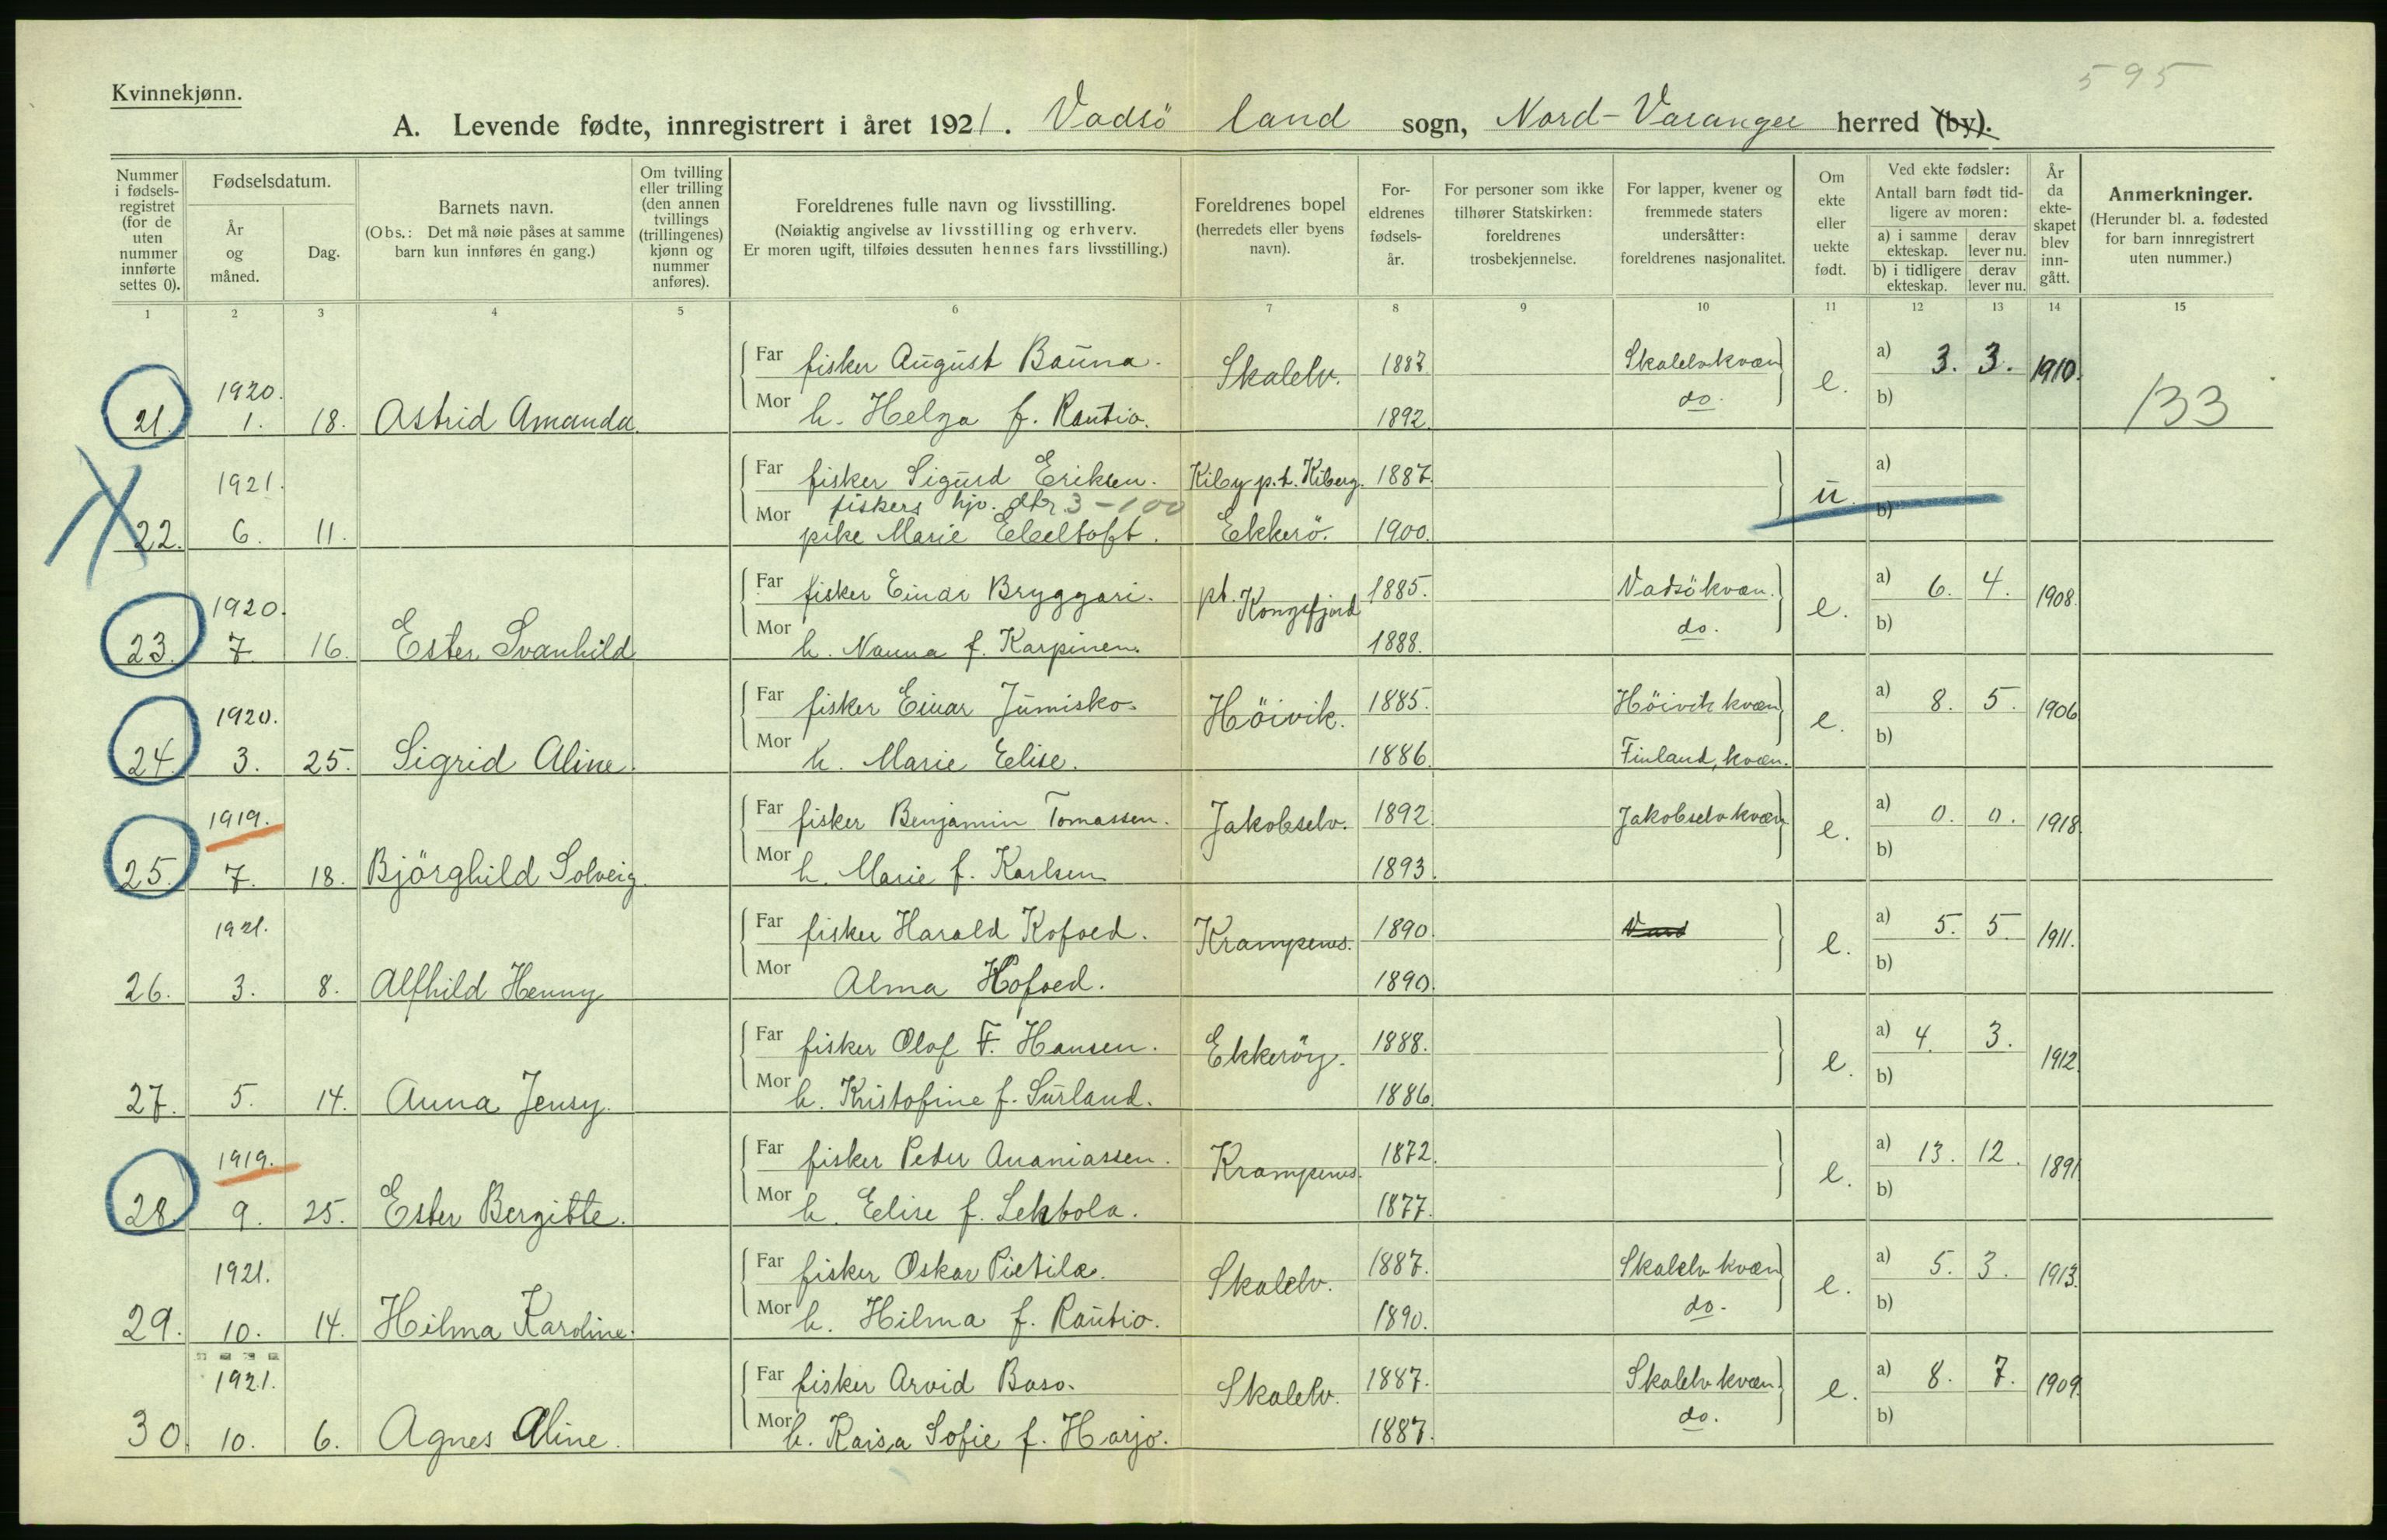 595
Kvinnekjønn.
A. Levende fødte, innregistrert i året 1921. Vadsö land sogn, Nord-Varanger herred (by).
Nummer i fødsels-registret (for de uten nummer innførte settes 0).
Fødselsdatum.
År og måned.
Dag.
Barnets navn.
(Obs.: Det må nøie påses at samme barn kun innføres én gang.)
Om tvilling eller trilling (den annen tvillings (trillingenes) kjønn og nummer anføres).
Foreldrenes fulle navn og livsstilling.
(Nøiaktig angivelse av livsstilling og erhverv.
Er moren ugift, tilføies dessuten hennes fars livsstilling.)
Foreldrenes bopel (herredets eller byens navn).
For-eldrenes fødsels-år.
For personer som ikke tilhører Statskirken: foreldrenes trosbekjennelse.
For lapper, kvener og fremmede staters undersåtter: foreldrenes nasjonalitet.
Om ekte eller uekte født.
Ved ekte fødsler:
Antall barn født tid-ligere av moren:
a) i samme ekteskap.
derav lever nu.
b) i tidligere ekteskap.
derav lever nu.
År da ekte-skapet blev inn-gått.
Anmerkninger.
(Herunder bl. a. fødested for barn innregistrert uten nummer.)
1 2 3 4 5 6 7 8 9 10 11 12 13 14 15
1920. Far fisker August Bauna. Skalelv. 1887. Skalelv kvæn a) 3. 3. 1910.
21. 1. 18. Astrid Amanda. Mor h. Helga f. Rautio. 1892. do. e. b) 133
1921. Far fisker Sigurd Eriksen. Kiby p.t. Kiberg. 1887. a)
fiskers hjv. dtr. 3-100
22. 6. 11. Mor pike Marie Ebeltoft. Ekkerö. 1900. u. b)
1920. Far fisker Einar Bryggari. pt. Kongsfjord 1885. Vadsö kvæn. a) 6. 4. 1908.
23. 7. 16. Ester Svanhild Mor h. Nanna f. Karpinen. 1888. do. e. b)
1920. Far fisker Einar Jumisko. Höivik. 1885. Höivik kvæn a) 8. 5. 1906
24. 3. 25. Sigrid Aline. Mor h. Marie Eelise. 1886. Finland, kvæn. e. b)
1919. Far fisker Benjamin Tomassen. Jakobselv. 1892. Jakobselv kvæn a) 0. 0. 1918
25. 7. 18. Björghild Solveig. Mor h. Marie f. Karlsen 1893. e. b)
1921. Far fisker Harald Kofoed. Krampenes. 1890. a) 5. 5. 1911.
26. 3. 8. Alfhild Henny Mor Alma Kofoed. 1890. e. b)
Far fisker Olaf F. Hansen. Ekkeröy. 1888. a) 4. 3. 1912
27. 5. 14. Anna Jensy. Mor h. Kristofine f. Surland. 1886. e. b)
1919. Far fisker Peder Ananiassen. Krampenes. 1872. a) 13. 12. 1891
28 9. 25. Ester Bergitte. Mor h. Eelise f. Lehtola. 1877. e. b)
1921. Far fisker Oskar Pietilæ. Skalelv. 1887. Skalelv kvæn a) 5. 3. 1913.
29. 10. 14. Hilma Karoline. Mor h. Hilma f. Rautio. 1890. do. e. b)
1921. Far fisker Arvid Baso. Skalelv. 1887. Skalelv kvæn. a) 8. 7. 1909.
30. 10. 6. Agnes Aline. Mor h. Kaisa Sofie f. Harjo. 1887. do. e. b)